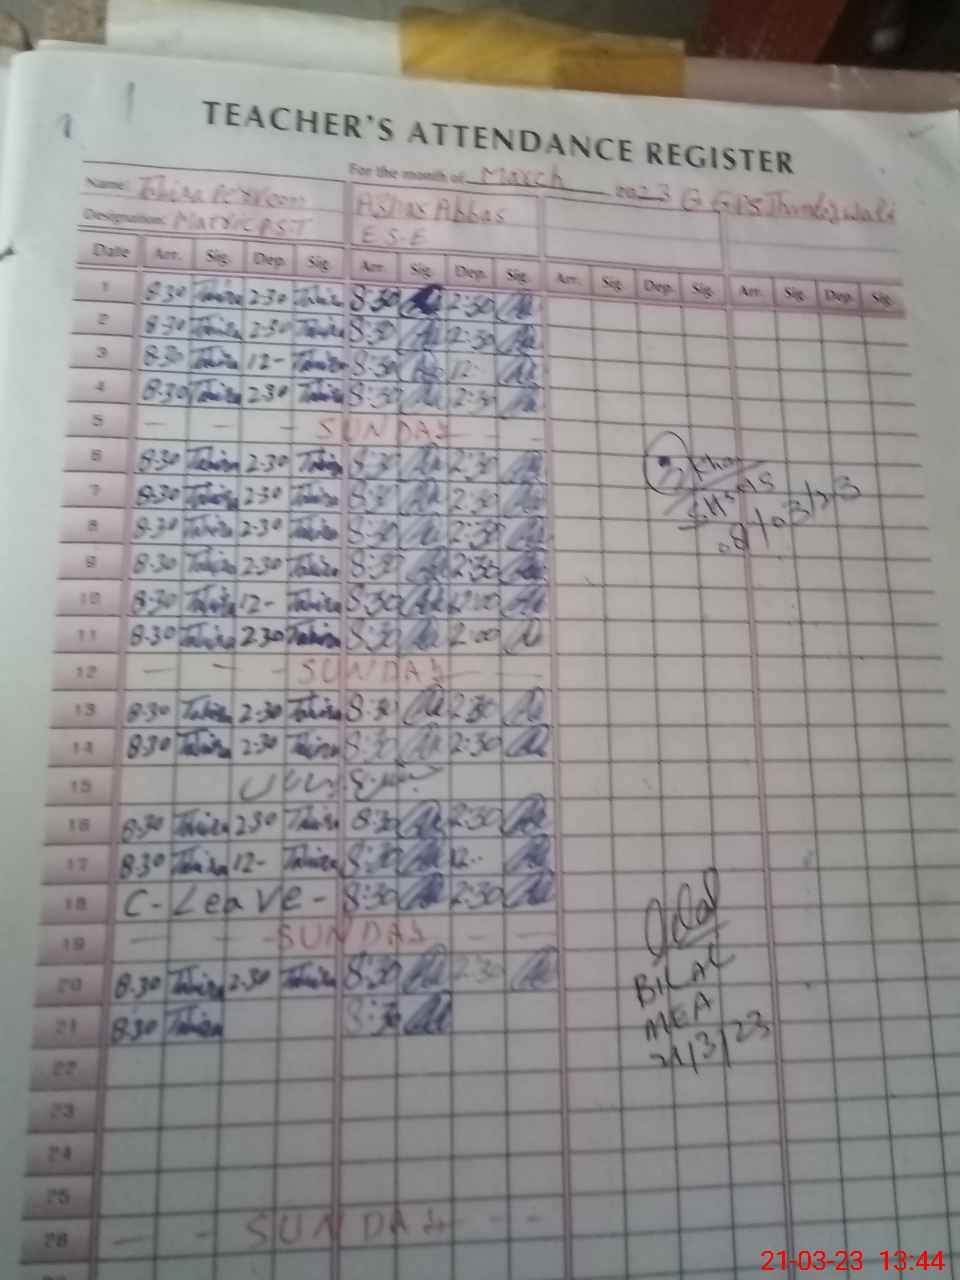 TEACHER'S ATTENDANCE REGISTER
For the month of March 2023 G GPS
Name: Tahira Perveen Ashar Abbas
Designation: Matric PST E.S.E
Date Arr. Sig. Dep. Sig. Arr. Sig. Dep. Sig. Arr. Sig. Dep. Sig. Arr. Sig. Dep. Sig.
1 8:30 Tahira 2:30 Tahira 8:30 2:30
2 8:30 Tahira 2:30 Tahira 8:30 2:30
3 8:30 Tahira 12- Tahira 8:30 12-
4 8:30 Tahira 2:30 Tahira 8:30 2:30
5 — — — SUNDAY — — —
6 8:30 Tahira 2:30 Tahira 8:30 2:30
7 8:30 Tahira 2:30 Tahira 8:30 2:30
8 8:30 Tahira 2:30 Tahira 8:30 2:30
08/03/23
9 8:30 Tahira 2:30 Tahira 8:30 2:30
10 8:30 Tahira 12- Tahira 8:30 12:00
11 8:30 Tahira 2:30 Tahira 8:30 2:00
12 — — — SUNDAY — — —
13 8:30 Tahira 2:30 Tahira 8:30 2:30
14 8:30 Tahira 2:30 Tahira 8:30 2:30
15
16 8:30 Tahira 2:30 Tahira 8:30 2:30
17 8:30 Tahira 12- Tahira 8:30 12--
18 C-Leave- 8:30 2:30
19 — — - SUNDAY — — —
20 8:30 Tahira 2:30 Tahira 8:30 2:30
BILAL
21 8:30 Tahira 8:30
MEA
21/3/23
22
23
24
25
26 — - SUNDAY - - -
21-03-23 13:44